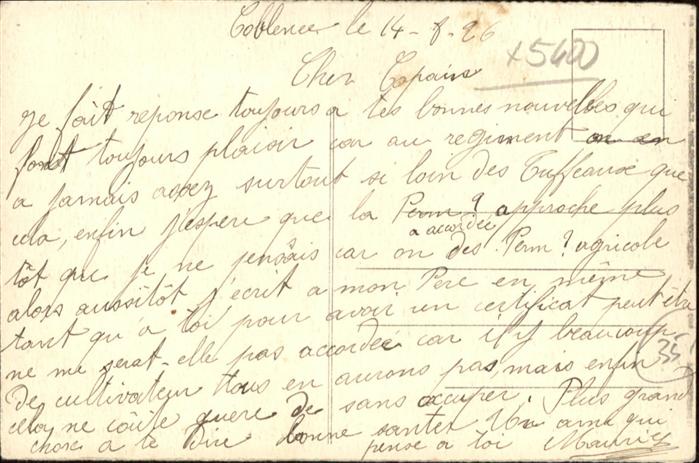 Coblence le 14-8-26
x5400
Cher Copain
Je fait reponse toujours a tes bonnes nouvelles qui
font toujours plaisir car au regiment on en
a jamais assez surtout si loin des Tuffeaux que
cela, enfin j'espere que la Perm? approche plus
tôt que je ne pensais car on a accordée des Perm? agricole
alors aussitôt j'écrit a mon Pere en même
tant qu'a toi pour avoir un certificat peut être
ne me serat-elle pas accordée car il y beaucoup
De cultivateur tous en aurons pas, mais enfin
cela ne coûte guere de sans occuper. Plus grand
chose a te dire bonne santer Un ami qui
pense a toi Maurice
35